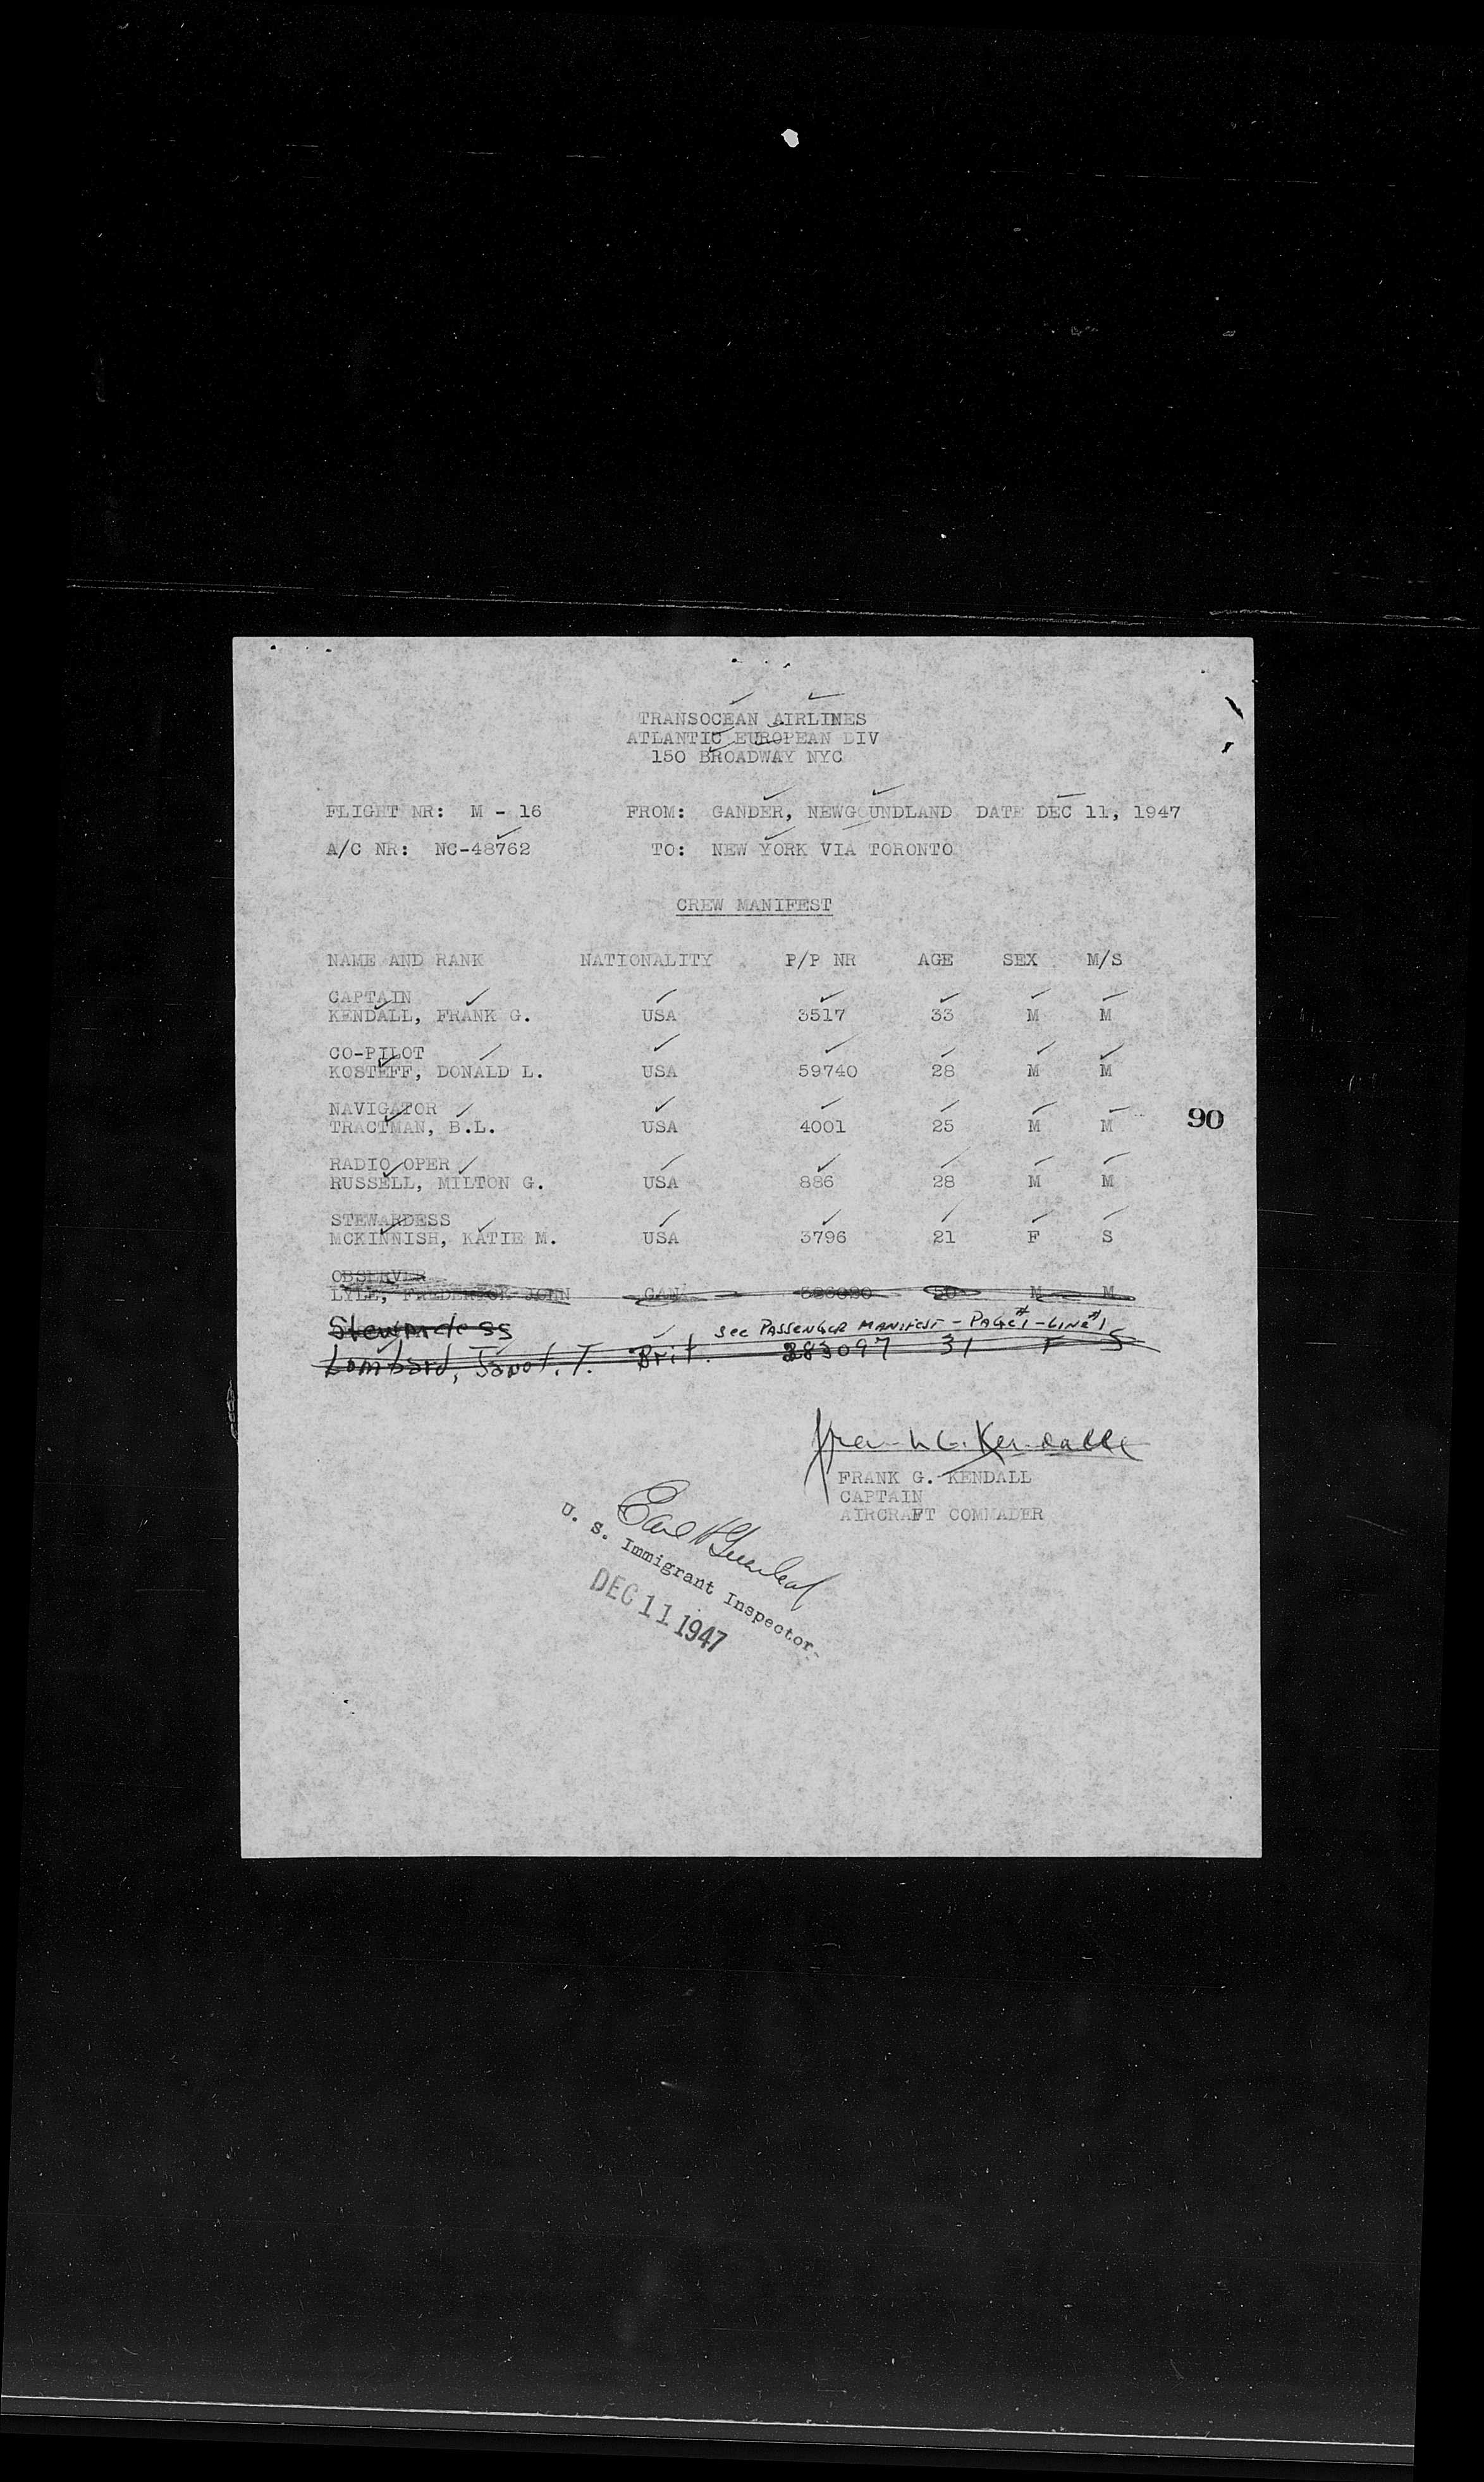 TRANSOCEAN AIRLINES
ATLANTIC EUROPEAN DIV
150 BROADWAY NYC
FLIGHT NR: M - 16 FROM: GANDER, NEWGOUNDLAND DATE DEC 11, 1947
A/C NR: NC-48762 TO: NEW YORK VIA TORONTO
CREW MANIFEST
NAME AND RANK NATIONALITY P/P NR AGE SEX M/S
CAPTAIN
KENDALL, FRANK G. USA 3517 33 M M
CO-PILOT
KOSTEFF, DONALD L. USA 59740 28 M M
NAVIGATOR
TRACTMAN, B.L. USA 4001 25 M M
90
RADIO OPER
RUSSELL, MILTON G. USA 886 28 M M
STEWARDESS
MCKINNISH, KATIE M. USA 3796 21 F S
OBSERVER
LYLE, FREDERICK JOHN CAN M M
Stewardess
see PASSENGER MANIFEST - PAGE #1 - LINE #1
Lombard, T. Brit. 283097 31 F S
Frank G. Kendall
FRANK G. KENDALL
CAPTAIN
AIRCRAFT COMMADER
Earl
U. S. Immigrant Inspector
DEC 11 1947